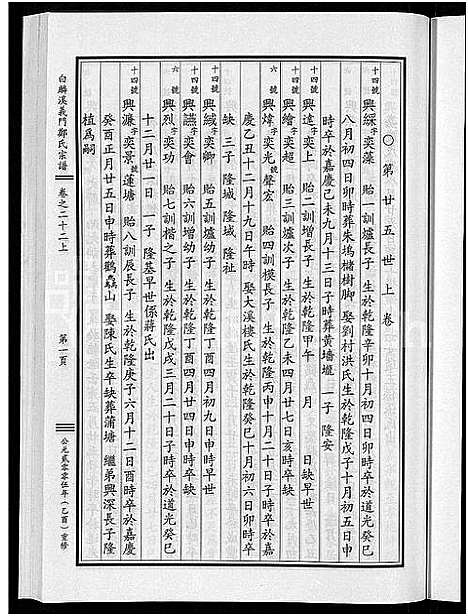 ○第廿五世上卷
十四號 興綵 字奕藻 貽一訓壚長子 生於乾隆辛卯十月初四日卯時卒於道光癸巳
八月初四日卯時葬朱塢櫧樹脚 娶劉村洪氏生於乾隆戊子十月初五日申
時卒於嘉慶己未九月十三日子時葬黄墻壠 一子 隆安
十四號 興達 字奕上 貽二訓增長子 生於乾隆甲午 月 日缺早世
十四號 興繪 字奕超 貽三訓壚次子 生於乾隆乙未四月廿七日亥時卒缺
六號 興煒 字奕光 號聲宏 貽四訓模長子 生於乾隆丙申十月二十日子時卒於嘉
慶乙丑十二月十九日午時 娶大溪樓氏生於乾隆癸巳十月初六日卯時卒
缺 三子 隆城 隆域 隆社
十四號 興緘 字奕卿 貽五訓壚幼子 生於乾隆丁酉四月初九日申時早世
十四號 興讌 字奕會 貽六訓增幼子 生於乾隆丁酉四月廿四日申時卒缺
六號 興烈 字奕功 貽七訓楷之子 生於乾隆戊戌三月二十日子時卒於道光癸巳
十二月廿一日 一子 隆基早世係蔣氏出
十四號 興濂 字奕景 號蓮塘 貽八訓辰長子 生於乾隆庚子六月十二日酉時卒於嘉慶
癸酉正月廿五日申時葬鸛山 娶陳氏生卒缺葬蒲塘 繼弟興深長子隆
植爲嗣
白麟溪義門鄭氏宗譜 卷之二十二上 第一頁 公元貳零零伍年(乙酉)重修